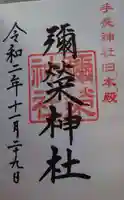 手長神社旧本殿
彌榮神社
令和二年十一月二十九日